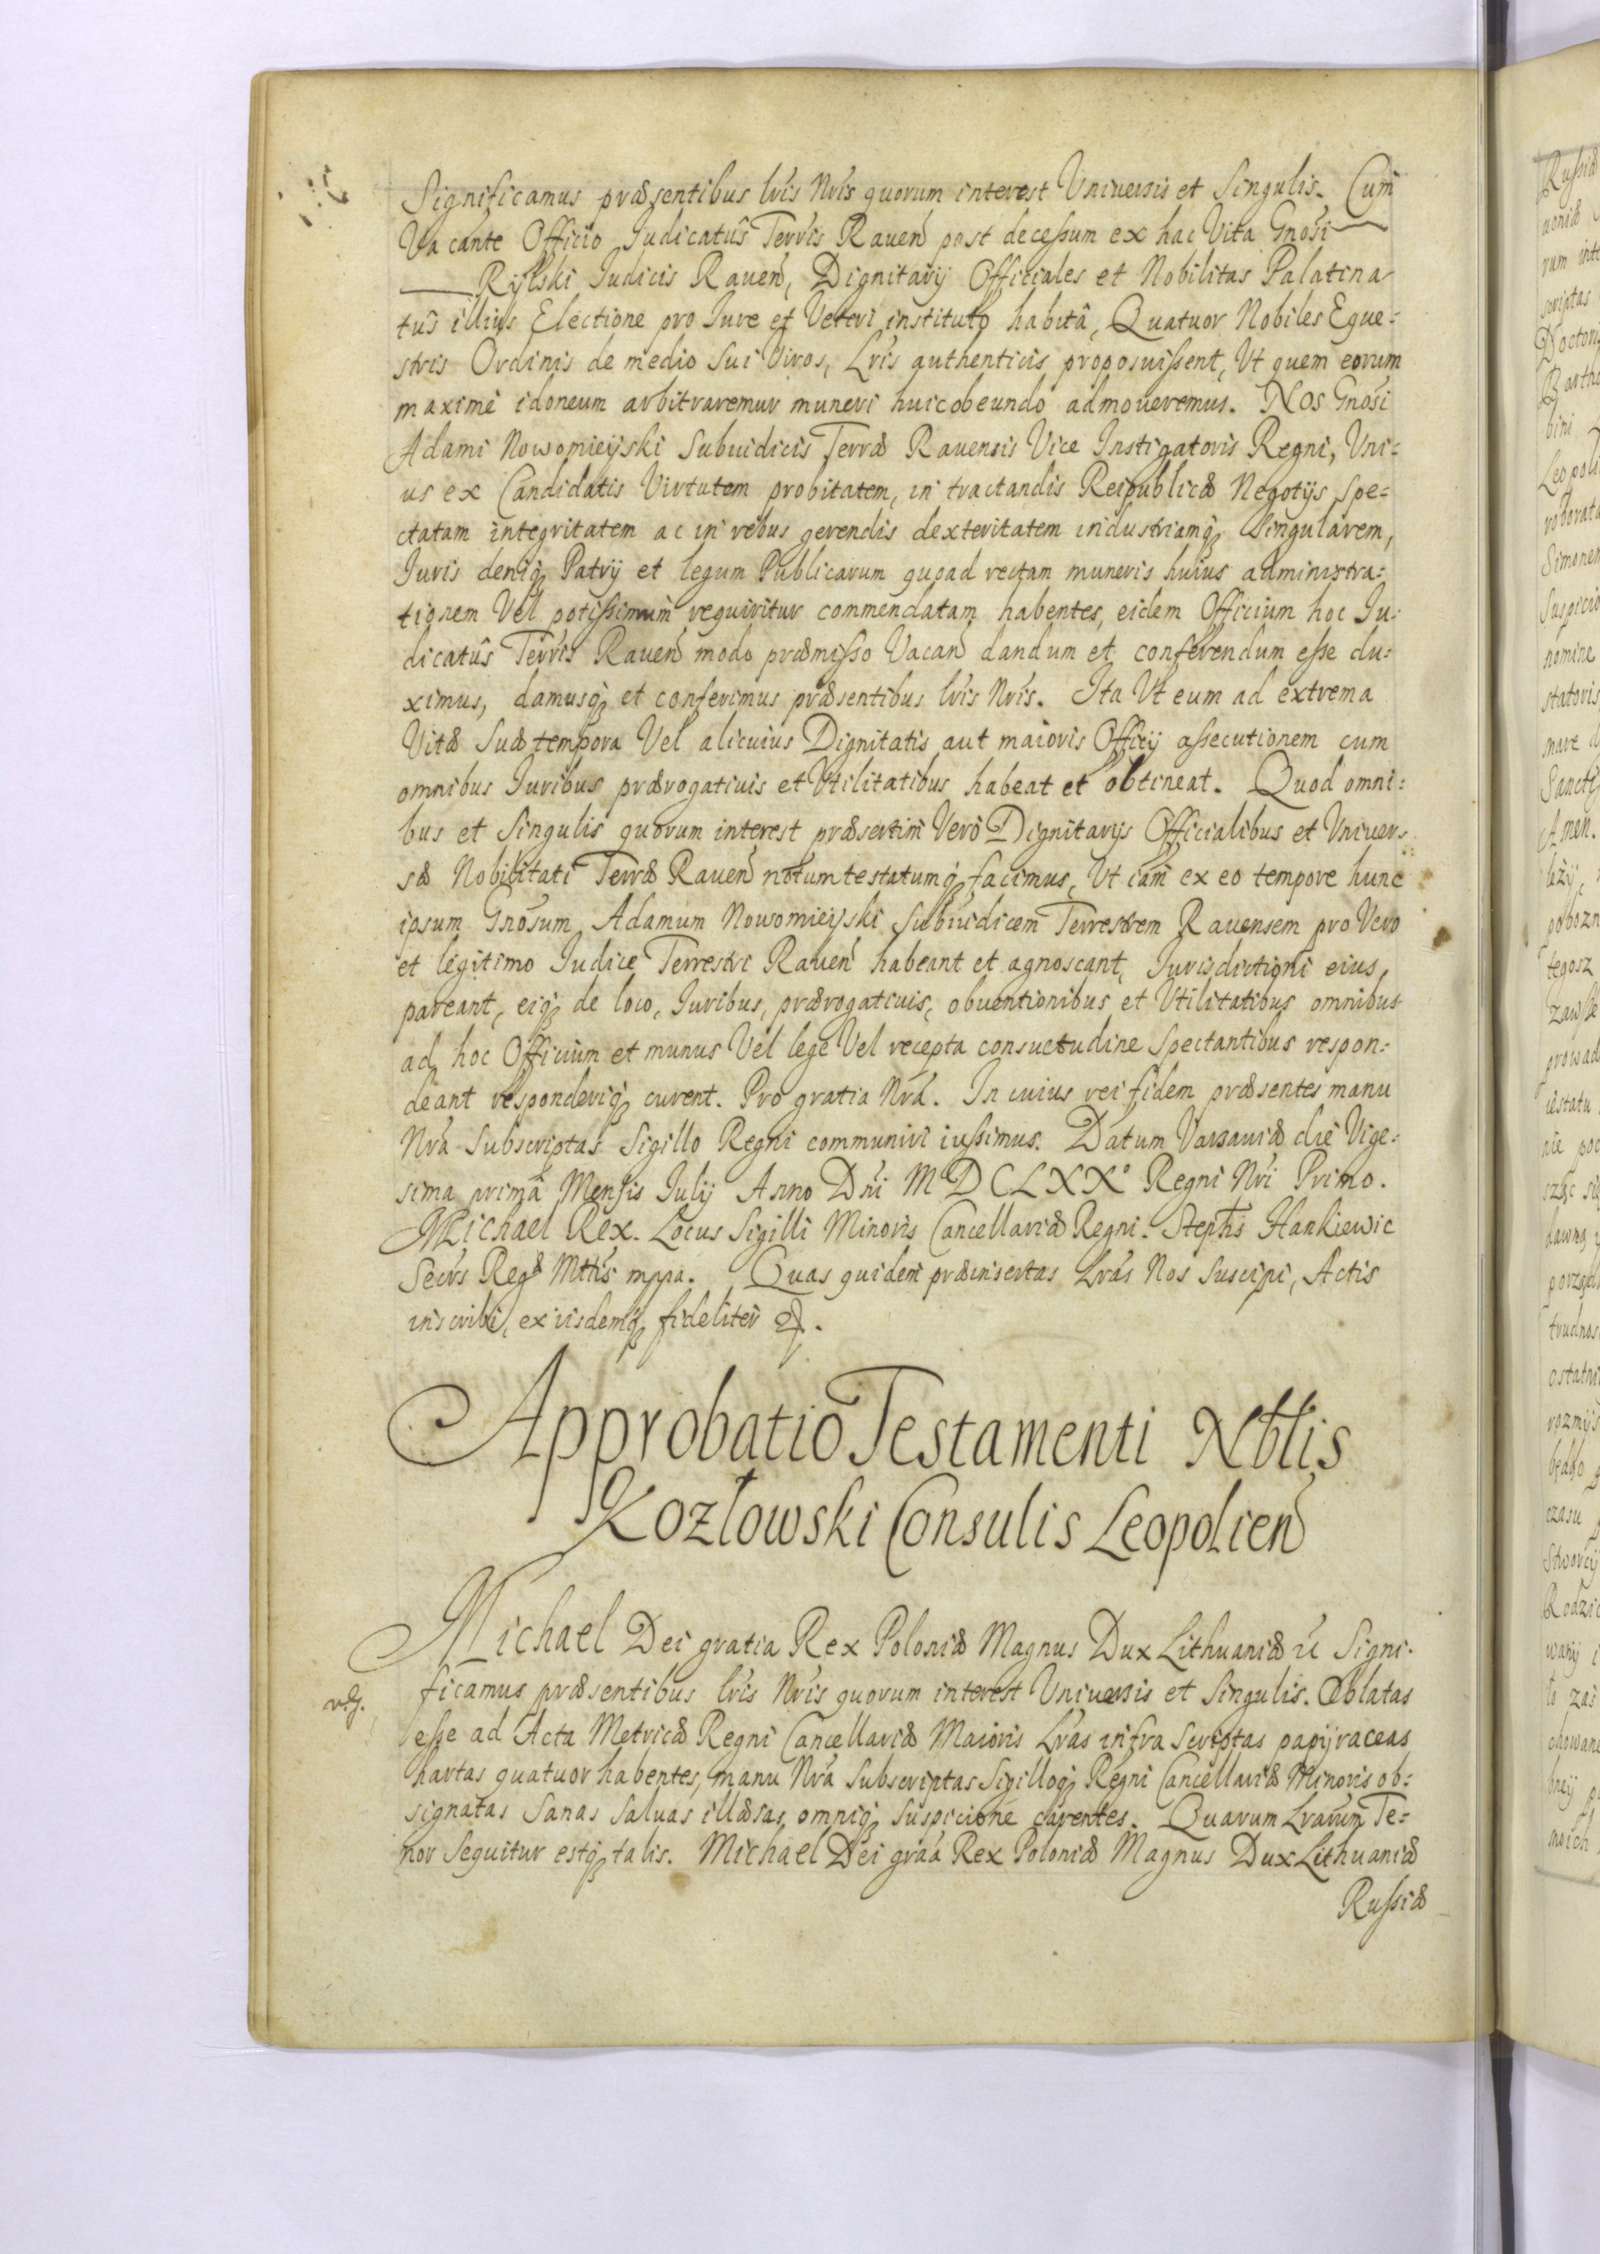 Significamus præsentibus lris Nris quorum interest Universis et Singulis. Cum
Vacante Officio Judicatûs Terris Raven post decessum ex hac Vita Gnosi
Rylski Judicis Raven, Dignitarij Officiales et Nobilitas Palatina
tus illius Electione pro Jure et Veteri instituto habitâ, Quatuor Nobiles Eque:
stris Ordinis de medio Sui Viros, Lris authenticis proposuissent, Ut quem eorum
maximè idoneum arbitraremur muneri huic obeundo admoveremus. Nos Gnosi
Adami Nowomieyski Subiudicis Terræ Ravensis Vice Instigatoris Regni, Uni:
us ex Candidatis Virtutem probitatem, in tractandis Reipublicæ Negotijs Spe:
ctatam integritatem ac in rebus gerendis dexteritatem industriamq Singularem,
Juris deniq Patrij et legum Publicarum quoad rectam muneris huius administra:
tionem Vel potissimum requiritur commendatam habentes, eidem Officium hoc Ju:
dicatûs Terris Raven modo præmisso Vacan dandum et conferendum esse du:
ximus, damusq et conferimus præsentibus lris Nris. Ita Ut eum ad extrema
Vitæ Suæ tempora Vel alicuius Dignitatis aut maioris Officij assecutionem cum
omnibus Juribus prærogativis et Utilitatibus habeat et obtineat. Quod omni:
bus et Singulis quorum interest præsertim Verò Dignitarijs Officialibus et Univer:
sæ Nobilitati Terræ Raven notum testatumq facimus, Ut iam ex eo tempore hunc
ipsum Gnosum Adamum Nowomieyski Subiudicem Terrestrem Ravensem pro Vero
et legitimo Judice Terrestri Raven habeant et agnoscant, Jurisdictioni eius
pareant, eiq de loco, Juribus, prærogativis, obventionibus et Utilitatibus omnibus
ad hoc Officium et munus Vel lege Vel recepta consuetudine Spectantibus respon:
deant responderiq curent. Pro gratia Nrâ. In cuius rei fidem præsentes manu
Nra Subscriptas Sigillo Regni communiri iussimus. Datum Varsaviæ die Vige:
sima primâ Mensis Julij Anno Dni MDCLXX° Regni Nri Primo.
Michael Rex. Locus Sigilli Minoris Cancellariæ Regni. Stephs Hankiewic
Secrs Regæ Mttis mppa. Quas quidem præinsertas Lras Nos Suscipi, Actis
inscribi, ex iisdemq fideliter &.
Approbatio Testamenti Nblis
Kozłowski Consulis Leopolien
Michael Dei gratia Rex Poloniæ Magnus Dux Lithuaniæ &c Signi:
ficamus præsentibus lris Nris quorum interest Universis et Singulis. Oblatas
esse ad Acta Metricæ Regni Cancellariæ Maioris Lras infra Scriptas papyraceas
hartas quatuor habentes, manu Nra Subscriptas Sigilloq Regni Cancellariæ Minoris ob:
signatas Sanas Salvas illæsas omniq Suspicione carentes. Quarum Lrarum Te:
nor Sequitur estq talis. Michael Dei graa Rex Poloniæ Magnus Dux Lithuaniæ
Russiæ